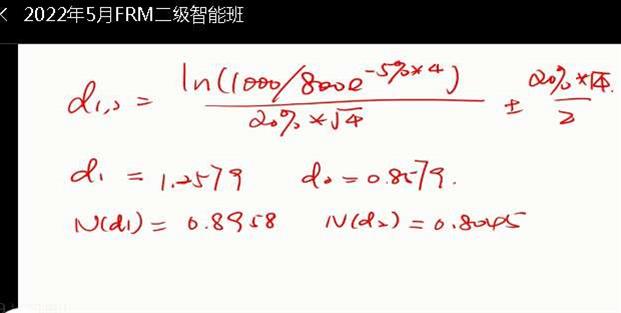 2022年5月FRM二级智能班
d₁,₂ = ln(1000/800e^-5%×4) / 20%×√4 ± 20%×√4 / 2
d₁ = 1.2579 d₂ = 0.8579.
N(d₁) = 0.8958 N(d₂) = 0.8045